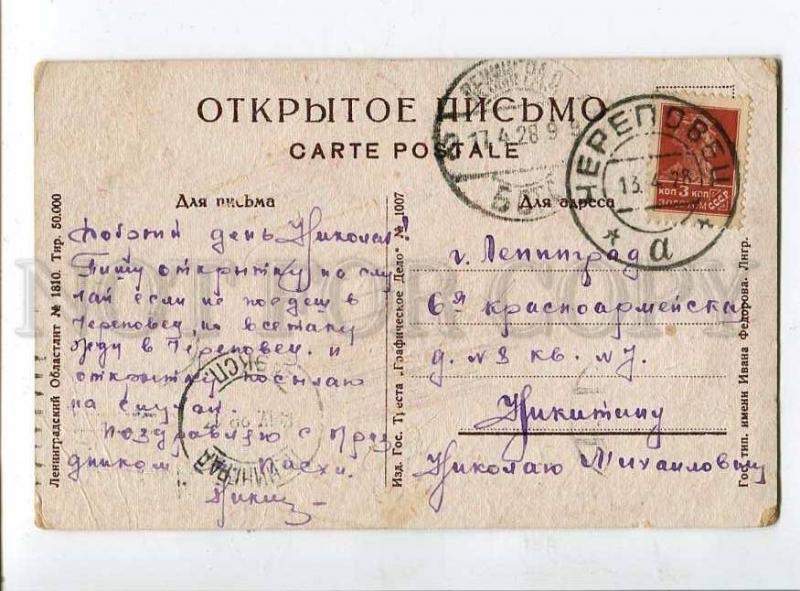 ОТКРЫТОЕ ПИСЬМО
CARTE POSTALE
Для письма
Для адреса
Добрый день Николай!
Пишу открытку на слу
чай если не поедеш в
Череповец, но всетаки
в Череповец. и
открытку посылаю
на случай.
Поздравляю с праз
дником Пасхи.
г. Ленинград
6я красноармейская
д. №3 кв. №7.
Никитину
Николаю Михайловичу
Ленинградский Областлит № 1810. Тир. 50.000
Изд. Гос. Треста „Графическое Дело" № 1007
Гос. тип. имени Ивана Федорова. Лнгр.
ЛЕНИНГРАД
17.4.28 9
ЧЕРЕПОВЕЦ
13.4.28
а
КОП 3 КОП
ЗОЛОТОМ
СССР
ЭКСП.
NOT FOR COPY